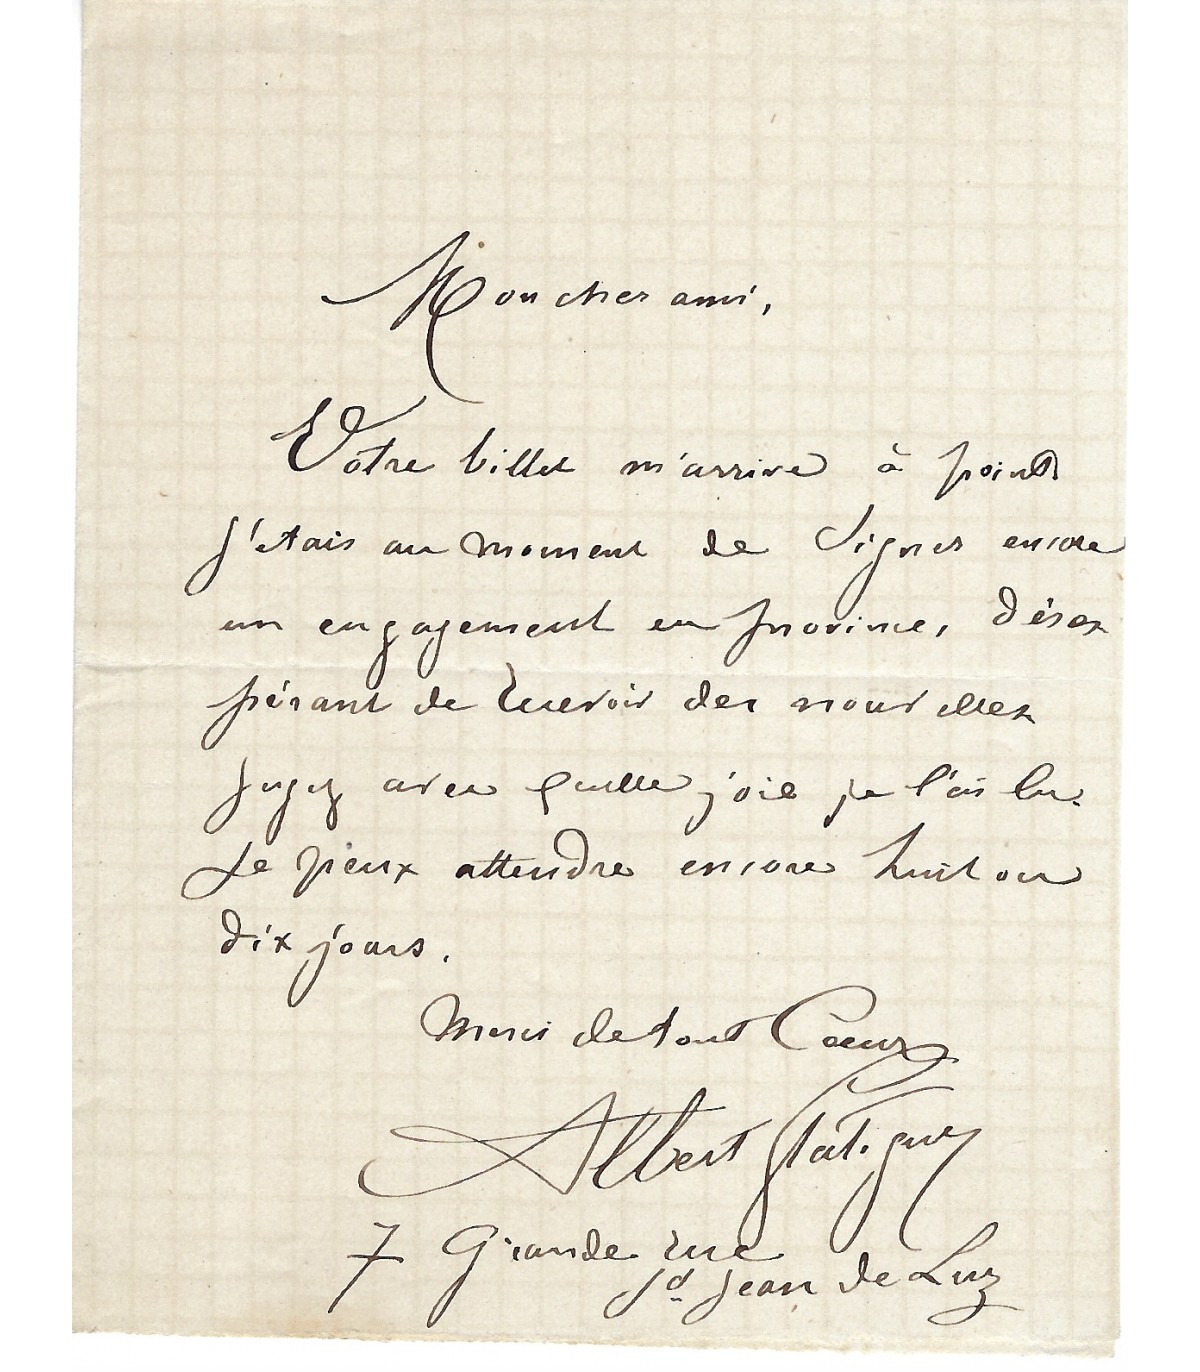 Mon cher ami,
Votre billet m'arrive à point
j'étais au moment de signer encore
un engagement en province, déses
pérant de recevoir des nouvelles
jugez avec quelle joie je l'ai lu.
Je peux attendre encore huit ou
dix jours.
Merci de tout Coeur
Albert Glatigny
7 Grande rue
St. Jean de Luz